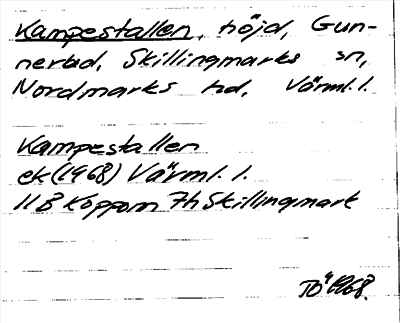 Kampestallen, höjd, Gun-
nerud, Skillingmarks sn,
Nordmarks hd, Värml. l.
Kampestallen
ek (1968) Värml. l.
11B Koppom 7h Skillingmark
TB 1968.